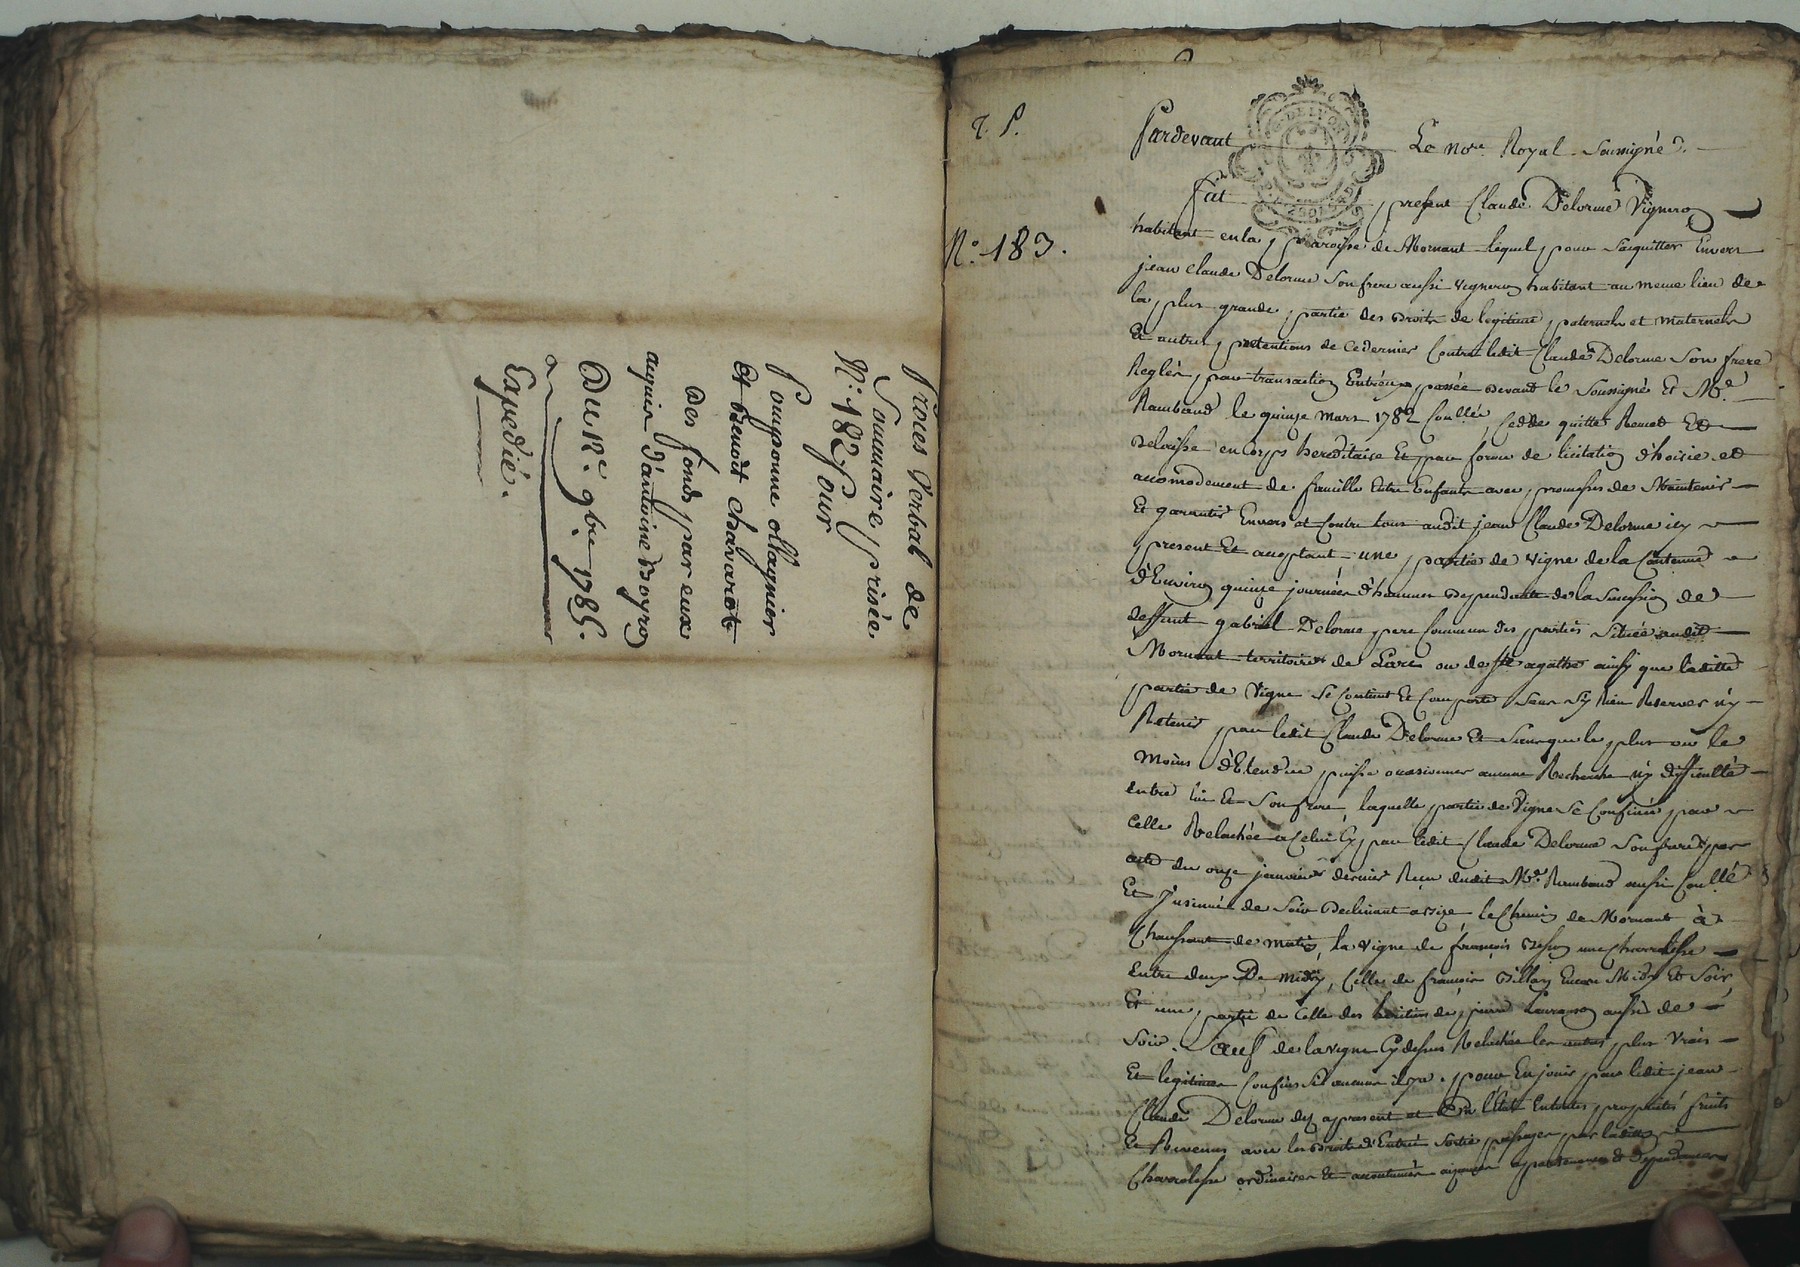 Proces Verbal de
Sommaire prisée
N.° 182 pour
Pomponne ollagnier
et Benoit Chavarot
des fonds par eux
acquis d'antoine Boyro
Du 12.e 9bre 1785.
Expedié.
N.° 183.
Pardevant Le Nore. Royal Soussigné.
Fut present Claude Delorme Vigneron
habitant en la paroisse de Mornant lequel pour s'aquitter Envers
jean Claude Delorme Son frere aussi Vigneron habitant au meme lieu de
la plus grande partie des Droits de legitime paternels et maternels
Et autres pretentions de ce dernier Contre ledit Claude Delorme Son frere
Reglés par transaction Entr'eux passée Devant le Soussigné Et Me.
Rambaud le quinze Mars 1782 Conllée, Cedde quitte Remet Et
Delaisse en corps hereditaire Et par forme de licitation d'hoirie et
accomodement de famille Entre Enfants avec promesses de Maintenir
Et garantir Envers et Contre tous audit jean Claude Delorme icy
present Et acceptant une partie de Vigne de la Contenue
d'Environ quinze journées d'hommes Dependante de la Succession de
deffunt gabriel Delorme pere Commun des parties Située audit
Mornant territoire de Lare ou de Ste agathe ainsy que laditte
partie de Vigne Se Contient Et Comporte Sans S'y Rien Reserver n'y
Retenir par ledit Claude Delorme Et Sans que le plus ou le
Moins d'Etendue puisse occasionner aucune Recherche n'y difficulté
Entre lui Et Son frere, laquelle partie de Vigne Se Confine par
Celle Relachée a Celui Cy par ledit Claude Delorme Son frere par
acte du onze janvier dernier Recu dudit Me. Rambaud aussi Conllé
Et Insinué de Soir Declinant a bize le Chemin de Mornant à
Chaussant de matin, la Vigne de françois une Charralisse
Entre deux De midy, Celle de françois Villon Encore Midy Et Soir,
Et une partie de Celle des heritiers de pierre aussi de
Soir. Sauf de la vigne Cy dessus Relachée les autres plus Vrais
Et legitimes Confins Si aucuns il y a. pour En jouir par ledit jean
Claude Delorme dez apresent et Dn l'état Entoutes proprietés fruits
Et Revenus avec les Droits d'Entrée Sortie passages par laditte
Charralisse ordinaires Et accoutumés aizances apartenances Et Dependances